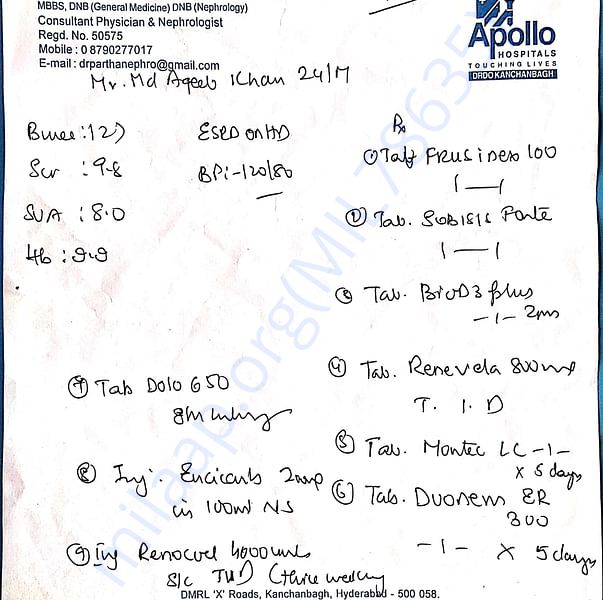 MBBS, DNB (General Medicine) DNB (Nephrology)
Consultant Physician & Nephrologist
Regd. No. 50575
Mobile : 0 8790277017
E-mail : drparthanephro@gmail.com
Apollo
HOSPITALS
TOUCHING LIVES
DRDO KANCHANBAGH
Mr. Md Aqeeb Khan 24/M
ESRD on HD
Scr : 9.8
BP:- 120/80
SUA : 8.0
Hb : 9.9
Rx
① Tab
100
1—1
② Tab. Sobisis Forte
1—1
③ Tab. Bio D3 plus
-1-
④ Tab. Renevela 800mg
T. I. D
⑤ Tab. Montec LC -1-
x 5 days
⑥ Tab. ER
300
-1- x 5 days
⑦ Tab Dolo 650
⑧ Inj. Encicarb
in 100ml NS
⑨ Inj Renocel 4000 units
S/c (thrice weekly
DMRL 'X' Roads, Kanchanbagh, Hyderabad - 500 058.
milaap.org(MIL78635